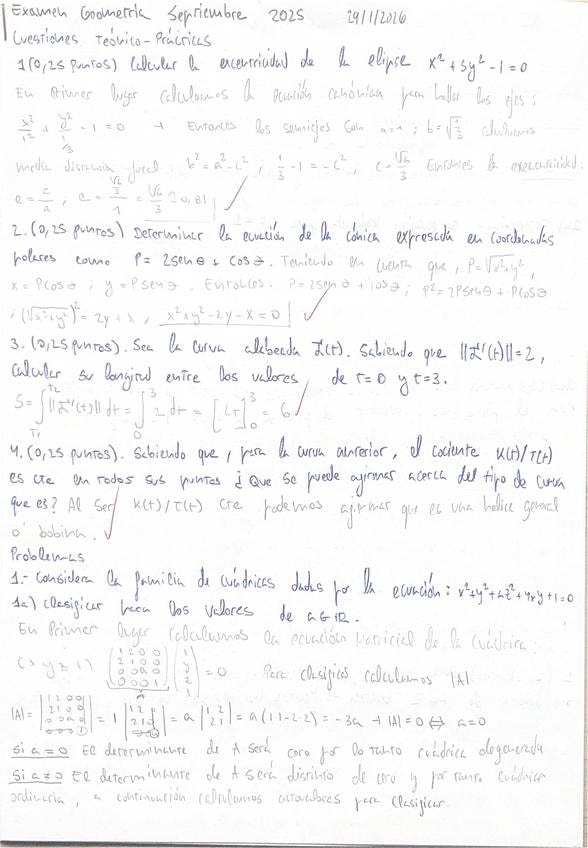 Examen Geometría Septiembre 2025 29/1/2026
Cuestiones Teórico-Prácticas
1(0,25 puntos) Calcular la excentricidad de la elipse x²+3y²-1=0
En Primer lugar calculamos la ecuación canónica para hallar los ejes:
x²/1² + y²/(1/3) - 1 = 0 → Entonces los semiejes son a=1; b=√(1/3) calculamos
media distancia focal: b²=a²-c²; 1/3-1=-c²; c=√6/3 Entonces la excentricidad.
e=c/a; e=(√6/3)/1=√6/3≃0,81
2. (0,25 puntos) Determinar la ecuación de la cónica expresada en coordenadas
polares como ρ=2senθ+cosθ. Teniendo en cuenta que, ρ=√x²+y²,
x=ρcosθ; y=ρsenθ. Entonces: ρ=2senθ+cosθ; ρ²=2ρsenθ+ρcosθ
; (√x²+y²)²=2y+x, x²+y²-2y-x=0
3. (0,25 puntos). Sea la curva alabeada α(t). Sabiendo que ||α'(t)||=2,
calcular su longitud entre los valores de t=0 y t=3.
S=∫||α'(t)|| dt=∫₀³ 2 dt=[2t]₀³=6
4. (0,25 puntos). Sabiendo que, para la curva anterior, el cociente K(t)/τ(t)
es cte en todos sus puntos ¿Que se puede afirmar acerca del tipo de curva
que es? Al ser K(t)/τ(t) cte podemos afirmar que es una helice general
o bobina.
Problemas
1.- Considera la familia de cuádricas dadas por la ecuación: x²+y²+az²+4xy+1=0
1a) Clasificar para los valores de a∈ℝ.
En Primer lugar calculamos la ecuación Matricial de la cuádrica:
(x y z 1) (1 2 0 0 / 2 1 0 0 / 0 0 a 0 / 0 0 0 1) (x / y / z / 1) = 0 Para clasificar calculamos |A|
|A|=|1 2 0 0 / 2 1 0 0 / 0 0 a 0 / 0 0 0 1|=1|1 2 0 / 2 1 0 / 0 0 a|=a|1 2 / 2 1|=a(1·1-2·2)=-3a → |A|=0 ⇔ a=0
si a=0 El determinante de A será cero por lo tanto cuádrica degenerada
si a≠0 El determinante de A será distinto de cero y por tanto cuádrica
ordinaria, a continuación calculamos autovalores para clasificar.